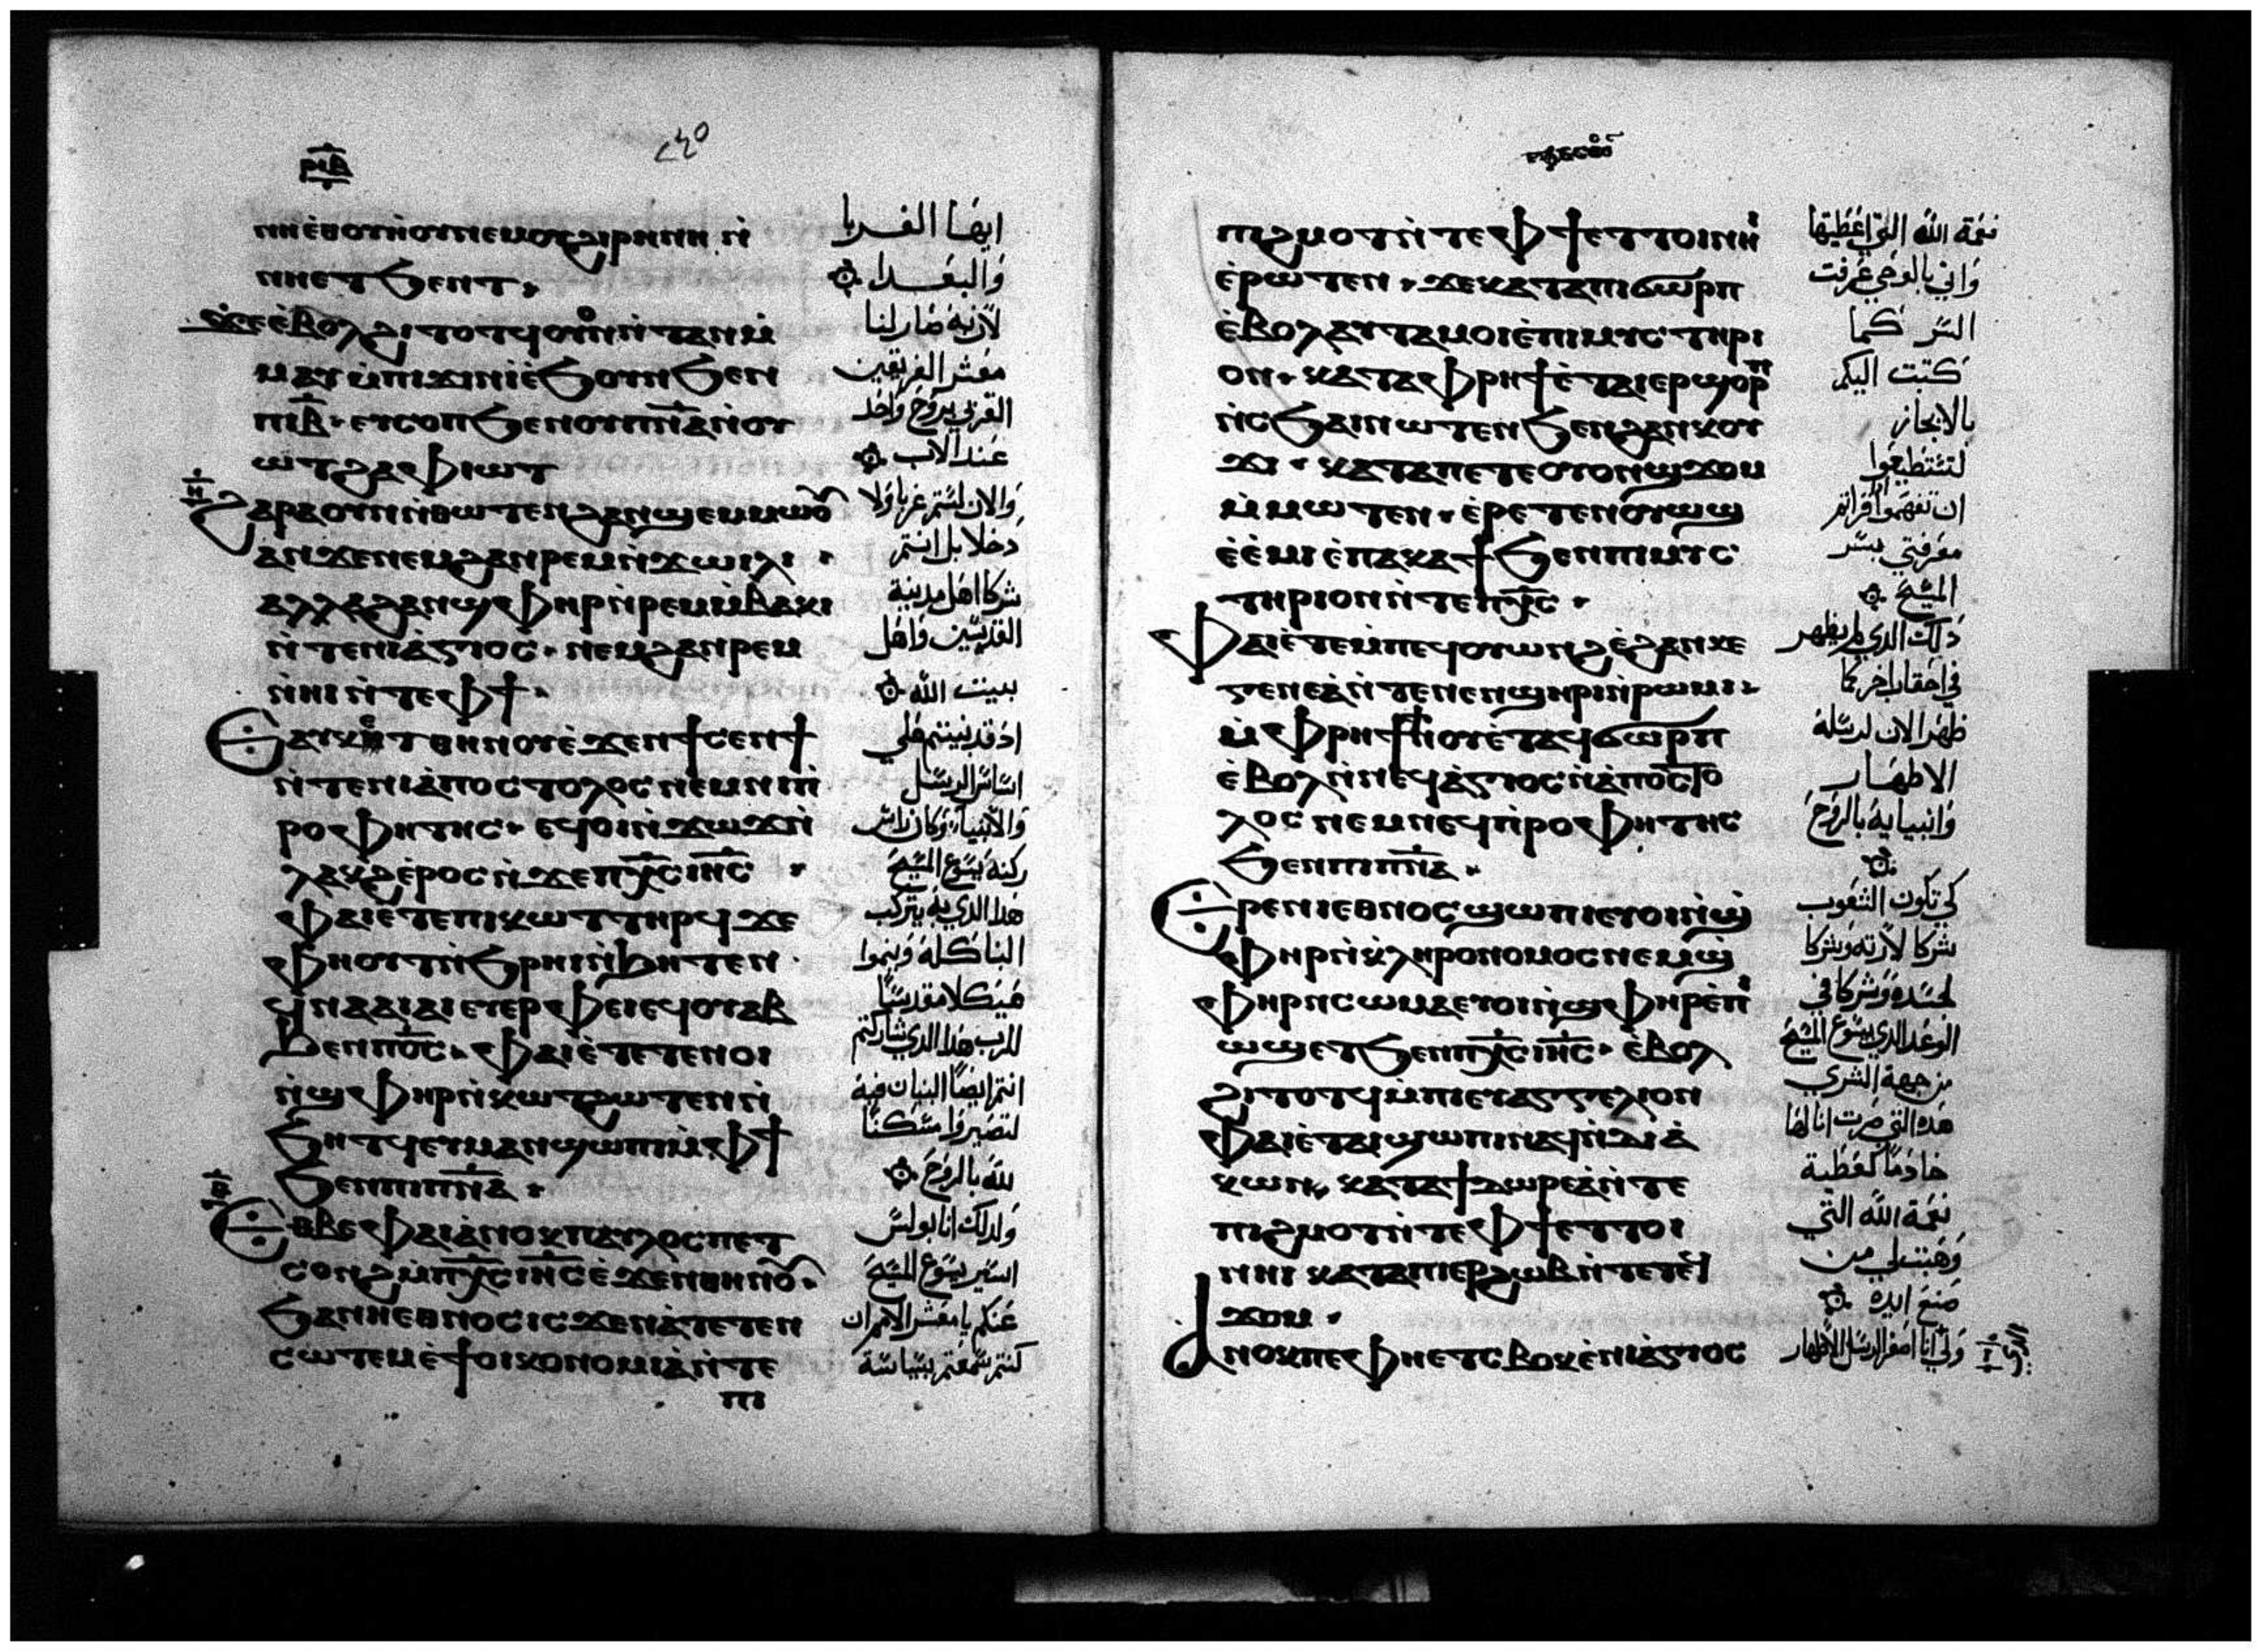 ⲣⲓⲃ
ⲛⲏⲉⲑⲟⲩⲏⲟⲩⲛⲉⲙⲟⲩϩⲓⲣⲏⲛⲏ ⲛ̀
ⲛⲏⲉⲧϧⲉⲛⲧ.
ϫⲉⲉ̀ⲃⲟⲗϩⲓⲧⲟⲧϥⲟⲩⲟⲛⲛ̀ⲧⲁⲛⲙ̀
ⲙⲁⲩⲙ̀ⲡⲓϫⲓⲛⲓⲉ̀ϧⲟⲩⲛϧⲉⲛ
ⲡⲓⲃ̅. ⲉⲩⲥⲟⲡϧⲉⲛⲟⲩⲡⲛ̅ⲁ̅ⲛ̀ⲟⲩ
ⲱⲧϩⲁⲫⲓⲱⲧ
ϩⲁⲣⲁⲟⲩⲛⲛ̀ⲑⲱⲧⲉⲛϩⲁⲛϣⲉⲙⲙⲱⲟⲩ
ⲁⲛϫⲉⲛⲉⲙϩⲁⲛⲣⲉⲙⲛ̀ϫⲱⲓⲗⲓ.
ⲁⲗⲗⲁϩⲁⲛϣⲫⲏⲣⲛ̀ⲣⲉⲙⲙ̀ⲃⲁⲕⲓ
ⲛ̀ⲧⲉⲛⲓⲁ̀ⲅⲓⲟⲥ. ⲛⲉⲙϩⲁⲛⲣⲉⲙ
ⲛ̀ⲏⲓⲛ̀ⲧⲉⲫϯ.
ⲉⲁⲩⲕⲉⲧⲑⲏⲛⲟⲩⲉ̀ϫⲉⲛϯⲥⲉⲛϯ
ⲛ̀ⲧⲉⲛⲓⲁ̀ⲡⲟⲥⲧⲟⲗⲟⲥⲛⲉⲙⲛⲓⲡ̀
ⲣⲟⲫⲏⲧⲏⲥ. ⲉϥⲟⲓⲛ̀ϫⲱϫⲛ̀
ⲗⲁⲕϩⲉ̀ⲣⲟⲥⲛ̀ϫⲉⲡⲭ̅ⲥ̅ⲓⲏ̅ⲥ̅ .
ⲫⲁⲓⲉ̀ⲧⲉⲡⲓⲕⲱⲧⲧⲏⲣϥϫⲉ
ⲫⲏⲟⲩⲧⲛ̀ϧⲣⲏⲓⲛ̀ϧⲏⲧⲉⲛ.
ϥⲛⲁⲁⲓⲁⲓⲉⲩⲉⲣⲫⲉⲓⲉϥⲟⲩⲁⲃ
ϧⲉⲛⲡⲟ̅ⲥ̅. ⲫⲁⲓⲉ̀ⲧⲉⲧⲉⲛⲟⲓ
ⲛ̀ϣⲫⲏⲣⲛ̀ⲕⲱⲧϩⲱⲧⲉⲛⲛ̀
ϧⲏⲧϥⲉⲩⲙⲁⲛϣⲱⲡⲓⲙ̀ⲫϯ
ϧⲉⲛⲡⲓⲡⲛ̅ⲁ̅.
ⲉⲑⲃⲉⲫⲁⲓⲁ̀ⲛⲟⲕⲡⲁⲩⲗⲟⲥⲡⲉⲧ
ⲥⲟⲛϩⲙ̀ⲡⲭ̅ⲥ̅ⲓⲏ̅ⲥ̅ⲉ̀ϫⲉⲛⲑⲏⲛⲟⲩ.
ϧⲁⲛⲓⲉⲑⲛⲟⲥⲓⲥϫⲉⲛⲁ̀ⲧⲉⲧⲉⲛ
ⲥⲱⲧⲉⲙⲉ̀ϯⲟⲓⲕⲟⲛⲟⲙⲓⲁ̀ⲛ̀ⲧⲉ
ⲡⲓ
ايها القربا
والبعدا
لان به صار لنا
معشر الفريقين
القربى بروح واحد
عند الاب
والان لستم غربا ولا
دخلا بل انتم
شركا اهل مدينة
القديسين واهل
بيت الله
اذ قد بنيتم على
اساس الرسل
والانبيا وكان راس
ركنه يسوع المسيح
هذا الذي به يتركب
البنا كله وينموا
هيكلا مقدسا
للرب هذا الذي شاركتم
انتم ايضا البنيان فيه
لتصيروا مسكنا
لله بالروح
ولذلك انا بولس
اسير يسوع المسيح
عنكم يا معشر الامم ان
كنتم سمعتم بسياسة
ⲡⲓϩⲙⲟⲧⲛ̀ⲧⲉⲫϯⲉⲧⲧⲟⲓⲛⲏⲓ
ⲉ̀ⲣⲱⲧⲉⲛ. ϫⲉⲕⲁⲧⲁⲡⲓϭⲱⲣⲡ
ⲉ̀ⲃⲟⲗⲁⲩⲧⲁⲙⲟⲓⲉ̀ⲡⲓⲙⲩⲥⲧⲏⲣⲓ
ⲟⲛ. ⲕⲁⲧⲁⲫⲣⲏϯⲉ̀ⲧⲁⲓⲉⲣϣⲟⲣⲡ
ⲛ̀ⲥϧⲁⲓⲛⲱⲧⲉⲛϧⲉⲛϩⲁⲛⲕⲟⲩ
ϫⲓ. ⲕⲁⲧⲁⲡⲉⲧⲉⲟⲩⲟⲛϣϫⲟⲙ
ⲙ̀ⲙⲱⲧⲉⲛ. ⲉ̀ⲣⲉⲧⲉⲛⲟⲩⲱϣ
ⲉ̀ⲉ̀ⲙⲓⲉ̀ⲡⲁⲕⲁϯϧⲉⲛⲡⲓⲙⲩⲥ
ⲧⲏⲣⲓⲟⲛⲛ̀ⲧⲉⲡⲭ̅ⲥ̅.
ⲫⲁⲓⲉ̀ⲧⲉⲙ̀ⲡⲉϥⲟⲩⲱⲛϩⲉ̀ϩⲁⲛⲕⲉ
ⲅⲉⲛⲉⲁ̀ⲛ̀ⲧⲉⲛⲉⲛϣⲏⲣⲓⲛ̀ⲣⲱⲙⲓ.
ⲙ̀ⲫⲣⲏϯⲛⲟⲩⲉ̀ⲧⲁϥϭⲱⲣⲡ
ⲉ̀ⲃⲟⲗⲛ̀ⲛⲉϥⲁ̀ⲅⲓⲟⲥⲛ̀ⲁ̀ⲡⲟⲥⲧⲟ
ⲗⲟⲥⲛⲉⲙⲛⲉϥⲡ̀ⲣⲟⲫⲏⲧⲏⲥ
ϧⲉⲛⲡⲓⲡⲛ̅ⲁ̅.
ⲉⲑⲣⲉⲛⲓⲉⲑⲛⲟⲥϣⲱⲡⲓⲉⲩⲟⲓⲛ̀ϣ
ⲫⲏⲣⲛ̀ⲕ̀ⲗⲏⲣⲟⲛⲟⲙⲟⲥⲛⲉⲙϣ
ⲫⲏⲣⲛⲥⲱⲙⲁⲉⲩⲟⲓⲛ̀ϣⲫⲏⲣⲉ̀ⲡⲓ
ⲱϣⲉⲧϧⲉⲛⲡⲭ̅ⲥ̅ⲓⲏ̅ⲥ̅. ⲉ̀ⲃⲟⲗ
ϩⲓⲧⲟⲧϥⲙ̀ⲡⲓⲉⲩⲁⲅⲅⲉⲗⲓⲟⲛ
ⲫⲁⲓⲉ̀ⲧⲁⲓϣⲱⲡⲓⲛⲁϥⲛ̀ⲇⲓⲁ̀
ⲕⲱⲛ. ⲕⲁⲧⲁϯⲇⲱⲣⲉⲁ̀ⲛ̀ⲧⲉ
ⲡⲓϩⲙⲟⲧⲛ̀ⲧⲉⲫϯⲉⲧⲧⲟⲓ
ⲛⲏⲓ ⲕⲁⲧⲁⲡⲓⲉⲣϩⲱⲃⲛ̀ⲧⲉⲧⲉϥ
ϫⲟⲙ.
ⲁⲛⲟⲕⲡⲉⲫⲏⲉⲧⲥⲃⲟⲕⲉ̀ⲛⲓⲁ̀ⲅⲓⲟⲥ
نعمة الله التي اعطيتها
واني بالوحي عرفت
السر كما
كتبت اليكم
بالايجاز
لتستطيعوا
ان تفهموا اذا قراتم
معرفتي بسر
المسيح
ذلك الذي لم يظهر
في احقاب اخر كما
ظهر الان لرسله
الاطهار
وانبيايه بالروح
كي تكون الشعوب
شركا لارثه وشركا
لجسده وشركا في
الوعد الذي بيسوع المسيح
من جهة البشرى
هذه التي صرت انا لها
خادما كعطية
نعمة الله التي
وهبت لي من
صنع ايده
ولي انا اصغر الرسل الاطهار